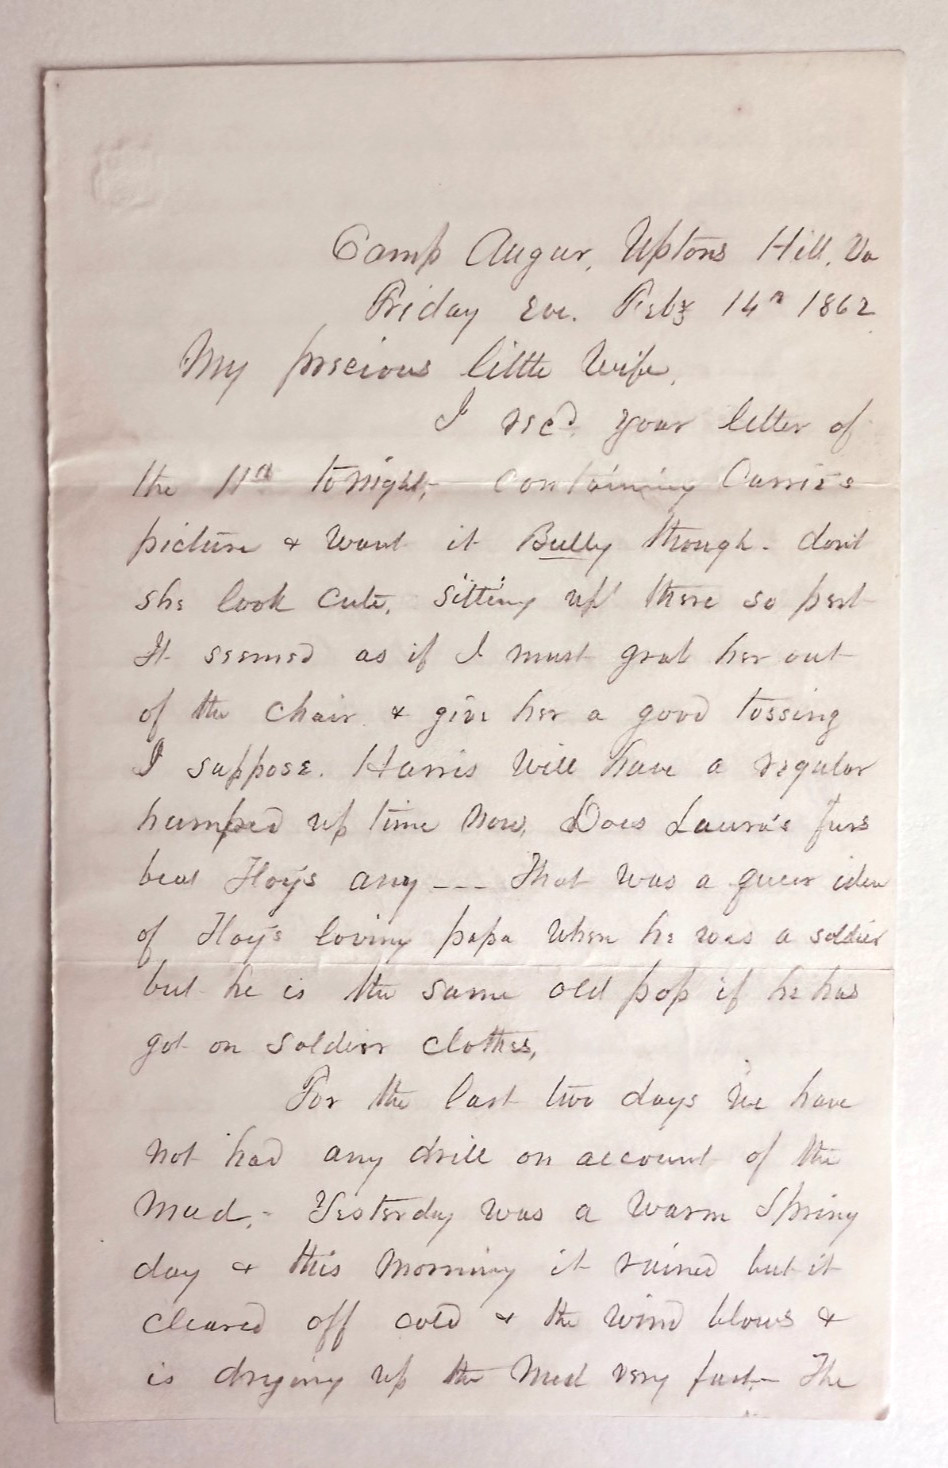 Camp Augur, Uptons Hill, Va
Friday Eve. Feby 14th 1862
My precious little Wife,
I recd. your letter of
the 11th tonight,- containing Carrie's
picture & want it Bully though - don't
she look cute, sitting up there so pert
It seemed as if I must grab her out
of the chair & give her a good tossing
I suppose. Harris will have a regular
humped up time now, Does Laura's furs
beat Floy's any --- That was a queer idea
of Floy's loving papa when he was a soldier
but he is the same old pop if he has
got on soldier clothes,
For the last two days we have
not had any drill on account of the
Mud,- Yesterday was a warm Spring
day & this morning it rained but it
cleared off cold & the wind blows &
is drying up the Mud very fast.- The